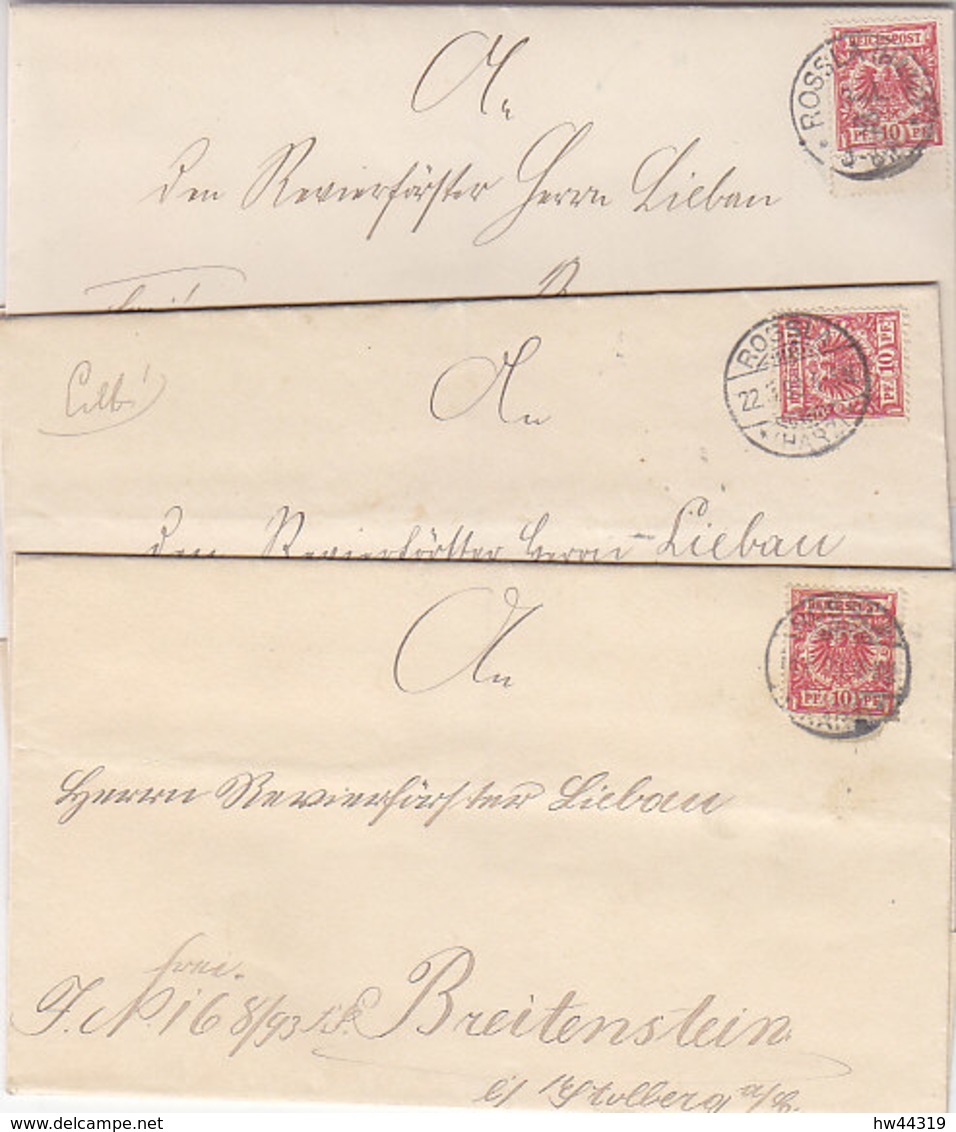 REICHSPOST
PF 10 PF
ROSSLA
An
den Revierförster Herrn Liebau
frei!
ROSSLA
22.
(HARZ)
PF 10 PF
An
den Revierförster Herrn Liebau
REICHSPOST
PF 10 PF
An
Herrn Revierförster Liebau
frei.
J. N. 168/93
Breitenstein
b/ Stolberg a/H.
hw44319